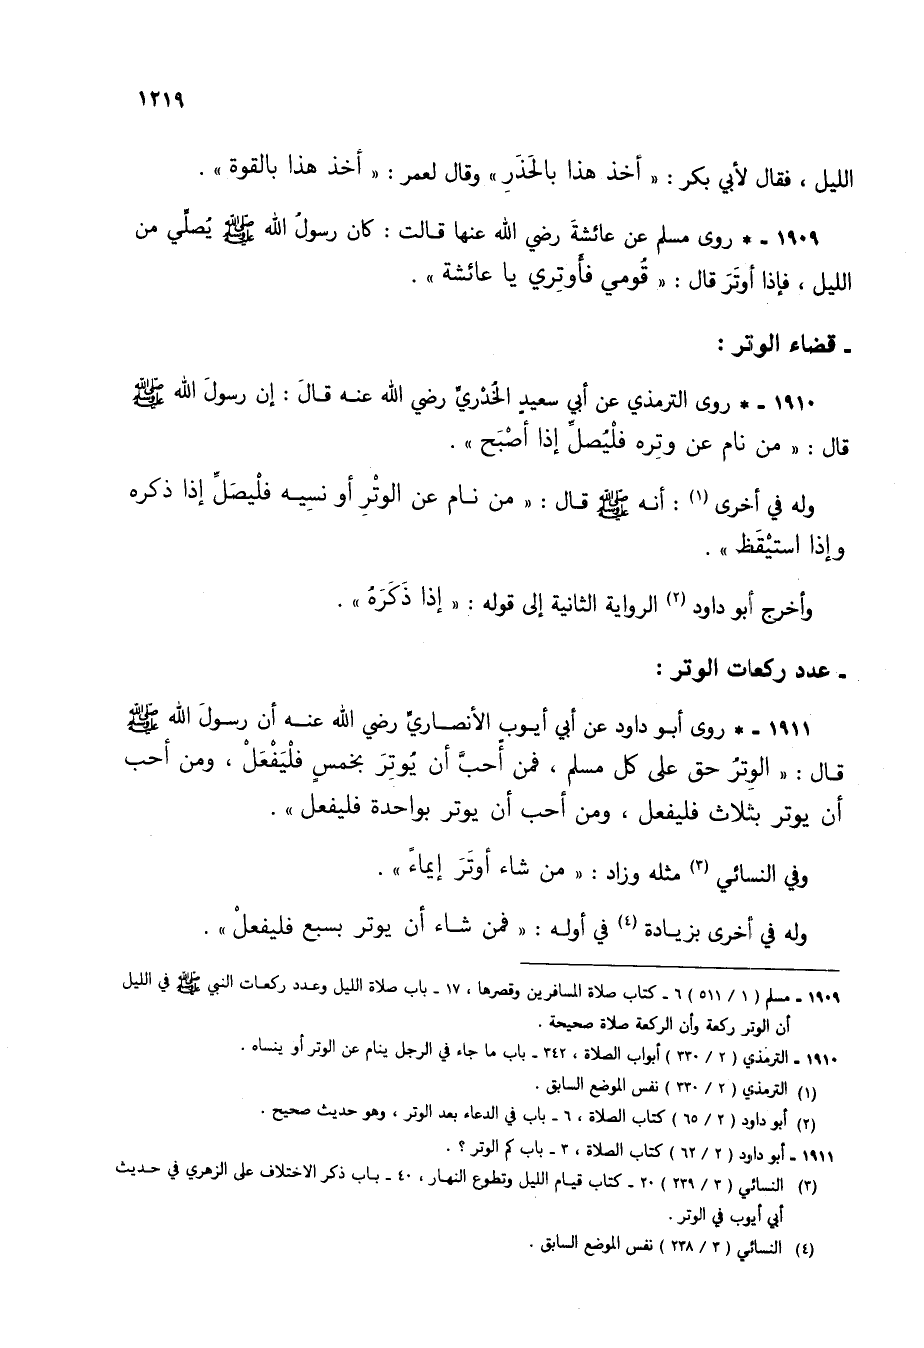 ١٢١٩
الليل ، فقال لأبي بكر : « أخذ هذا بالحَذَرِ » وقال لعمر : « أخذ هذا بالقوة » .
١٩٠٩ - * روى مسلم عن عائشةَ رضي الله عنها قـالت : كان رسولُ الله ﷺ يُصلِّي من
الليل ، فإذا أوتَرَ قال : « قُومي فأَوتِري يا عائشة » .
- قضاء الوتر :
١٩١٠ - * روى الترمذي عن أبي سعيدٍ الخُدْريِّ رضي الله عنـه قـالَ : إن رسولَ الله ﷺ
قال : « من نام عن وِترِه فلْيُصلِّ إذا أصْبَح » .
وله في أخرى (١) : أنـه ﷺ قـال : « من نـام عن الوتْرِ أو نسِيـه فلْيصَلِّ إذا ذكره
وإذا استيْقَظ » .
وأخرج أبو داود (٢) الرواية الثانية إلى قوله : « إذا ذَكَرَهُ » .
- عدد ركعات الوتر :
١٩١١ - * روى أبـو داود عن أبي أيـوبٍ الأنصـاريِّ رضي الله عنـه أن رسـولَ الله ﷺ
قـال : « الوِترُ حق على كل مسلم ، فمن أحبَّ أن يُوتِرَ بخمسٍ فلْيَفْعَلْ ، ومن أحب
أن يوتر بثلاث فليفعل ، ومن أحب أن يوتر بواحدة فليفعلْ » .
وفي النسائي (٣) مثله وزاد : « من شاء أوتَرَ إيماءً » .
وله في أخرى بزيـادة (٤) في أولـه : « فمن شـاء أن يوتر بسبع فليفعلْ » .
١٩٠٩ - مسلم ( ١ / ٥١١ ) ٦ - كتاب صلاة المسافرين وقصرها ، ١٧ - باب صلاة الليل وعـدد ركعـات النبي ﷺ في الليل
أن الوتر ركعة وأن الركعة صلاة صحيحة .
١٩١٠ - الترمذي ( ٢ / ٣٣٠ ) أبواب الصلاة ، ٣٤٢ - باب ما جاء في الرجل ينام عن الوتر أو ينساه .
(١) الترمذي ( ٢ / ٣٣٠ ) نفس الموضع السابق .
(٢) أبو داود ( ٢ / ٦٥ ) كتاب الصلاة ، ٦ - باب في الدعاء بعد الوتر ، وهو حديث صحيح .
١٩١١ - أبو داود ( ٢ / ٦٢ ) كتاب الصلاة ، ٣ - باب كم الوتر ؟ .
(٣) النسائي ( ٣ / ٢٣٩ ) ٢٠ - كتاب قيـام الليل وتطوع النهـار ، ٤٠ - بـاب ذكر الاختلاف على الزهري في حـديث
أبي أيوب في الوتر .
(٤) النسائي ( ٣ / ٢٣٨ ) نفس الموضع السابق .